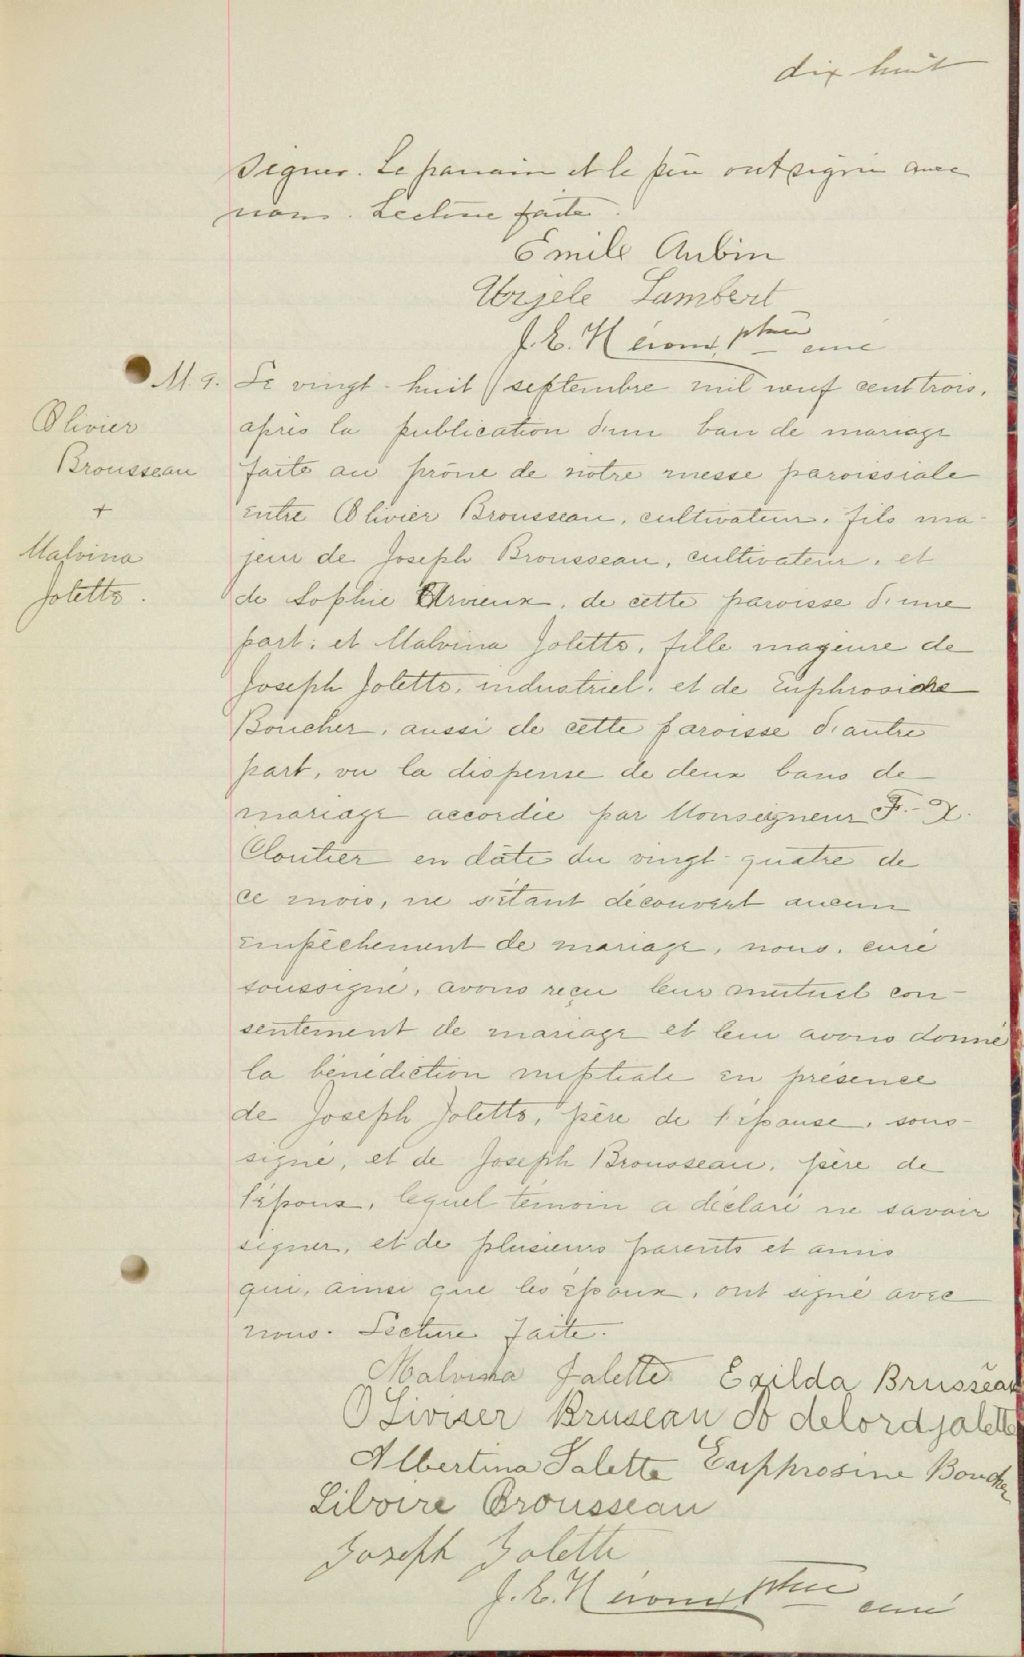 dix huit
signer. Le parrain et le père ont signé avec
nous. Lecture faite.
Emile Aubin
Lambert
J. E. Héroux ptre curé
M 9. Le vingt-huit septembre mil neuf cent trois,
Olivier
Brousseau
+
Malvina
Jolette.
après la publication d'un ban de mariage
faite au prône de notre messe paroissiale
entre Olivier Brousseau, cultivateur, fils ma-
jeur de Joseph Brousseau, cultivateur, et
de Sophie de cette paroisse d'une
part; et Malvina Jolette, fille mageure de
Joseph Jolette, industriel, et de Euphrosine
Boucher, aussi de cette paroisse d'autre
part, vu la dispense de deux bans de
mariage accordée par Monseigneur F.-X.
Cloutier en date du vingt-quatre de
ce mois, ne s'étant découvert aucun
empêchement de mariage, nous, curé
soussigné, avons reçu leur mutuel con-
sentement de mariage et leur avons donné
la bénédiction nuptiale en présence
de Joseph Jolette, père de l'épouse, sous-
signé, et de Joseph Brousseau, père de
l'époux, lequel témoin a déclaré ne savoir
signer, et de plusieurs parents et amis
qui, ainsi que les époux, ont signé avec
nous. Lecture faite.
Malvina Jalette Exilda Brusseau
OLiviser Bruseau delord jalette
Albertina Jalette Euphrosine Boucher
Liboire Brousseau
Joseph Jolette
J. E. Héroux ptre curé